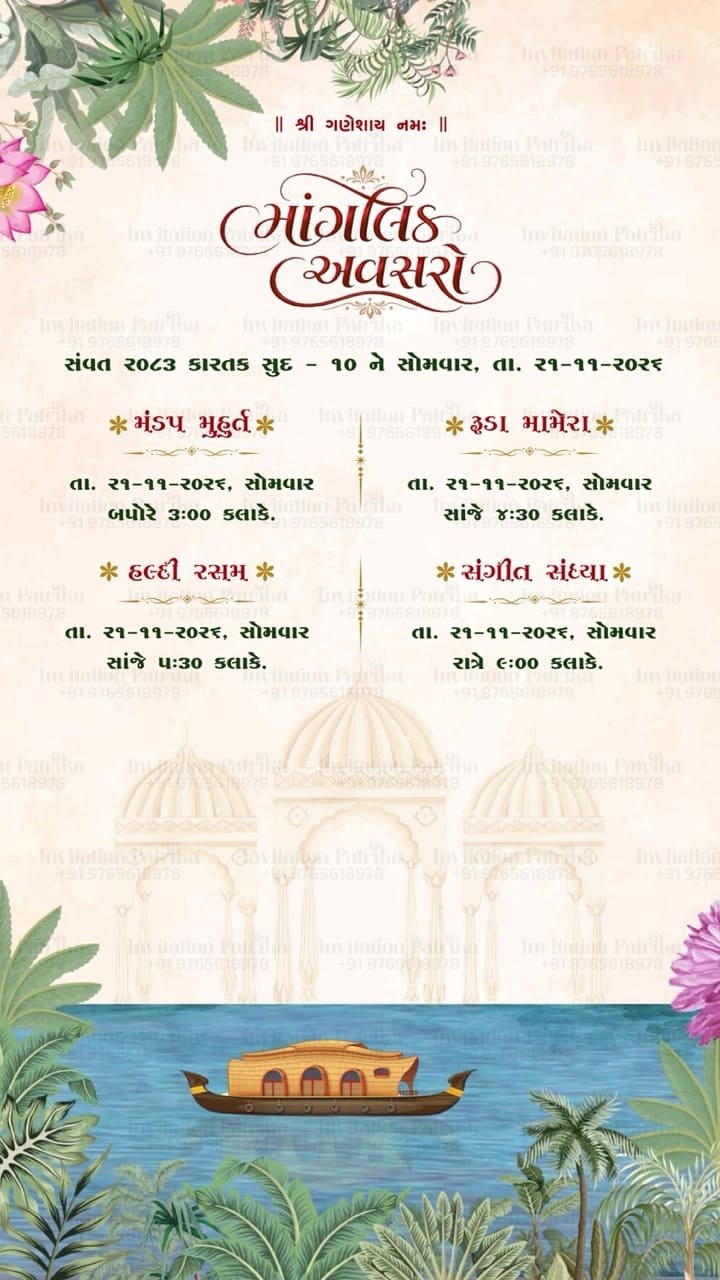 ॥ શ્રી ગણેશાય નમઃ ॥
માંગલિક
અવસરો
સંવત ૨૦૮૩ કારતક સુદ - ૧૦ ને સોમવાર, તા. ૨૧-૧૧-૨૦૨૬
મંડપ મુહુર્ત
તા. ૨૧-૧૧-૨૦૨૬, સોમવાર
બપોરે ૩:૦૦ કલાકે.
રૂડા મામેરા
તા. ૨૧-૧૧-૨૦૨૬, સોમવાર
સાંજે ૪:૩૦ કલાકે.
હલ્દી રસમ
તા. ૨૧-૧૧-૨૦૨૬, સોમવાર
સાંજે ૫:૩૦ કલાકે.
સંગીત સંધ્યા
તા. ૨૧-૧૧-૨૦૨૬, સોમવાર
રાત્રે ૯:૦૦ કલાકે.
Invitation Patrika
+91 9765618978